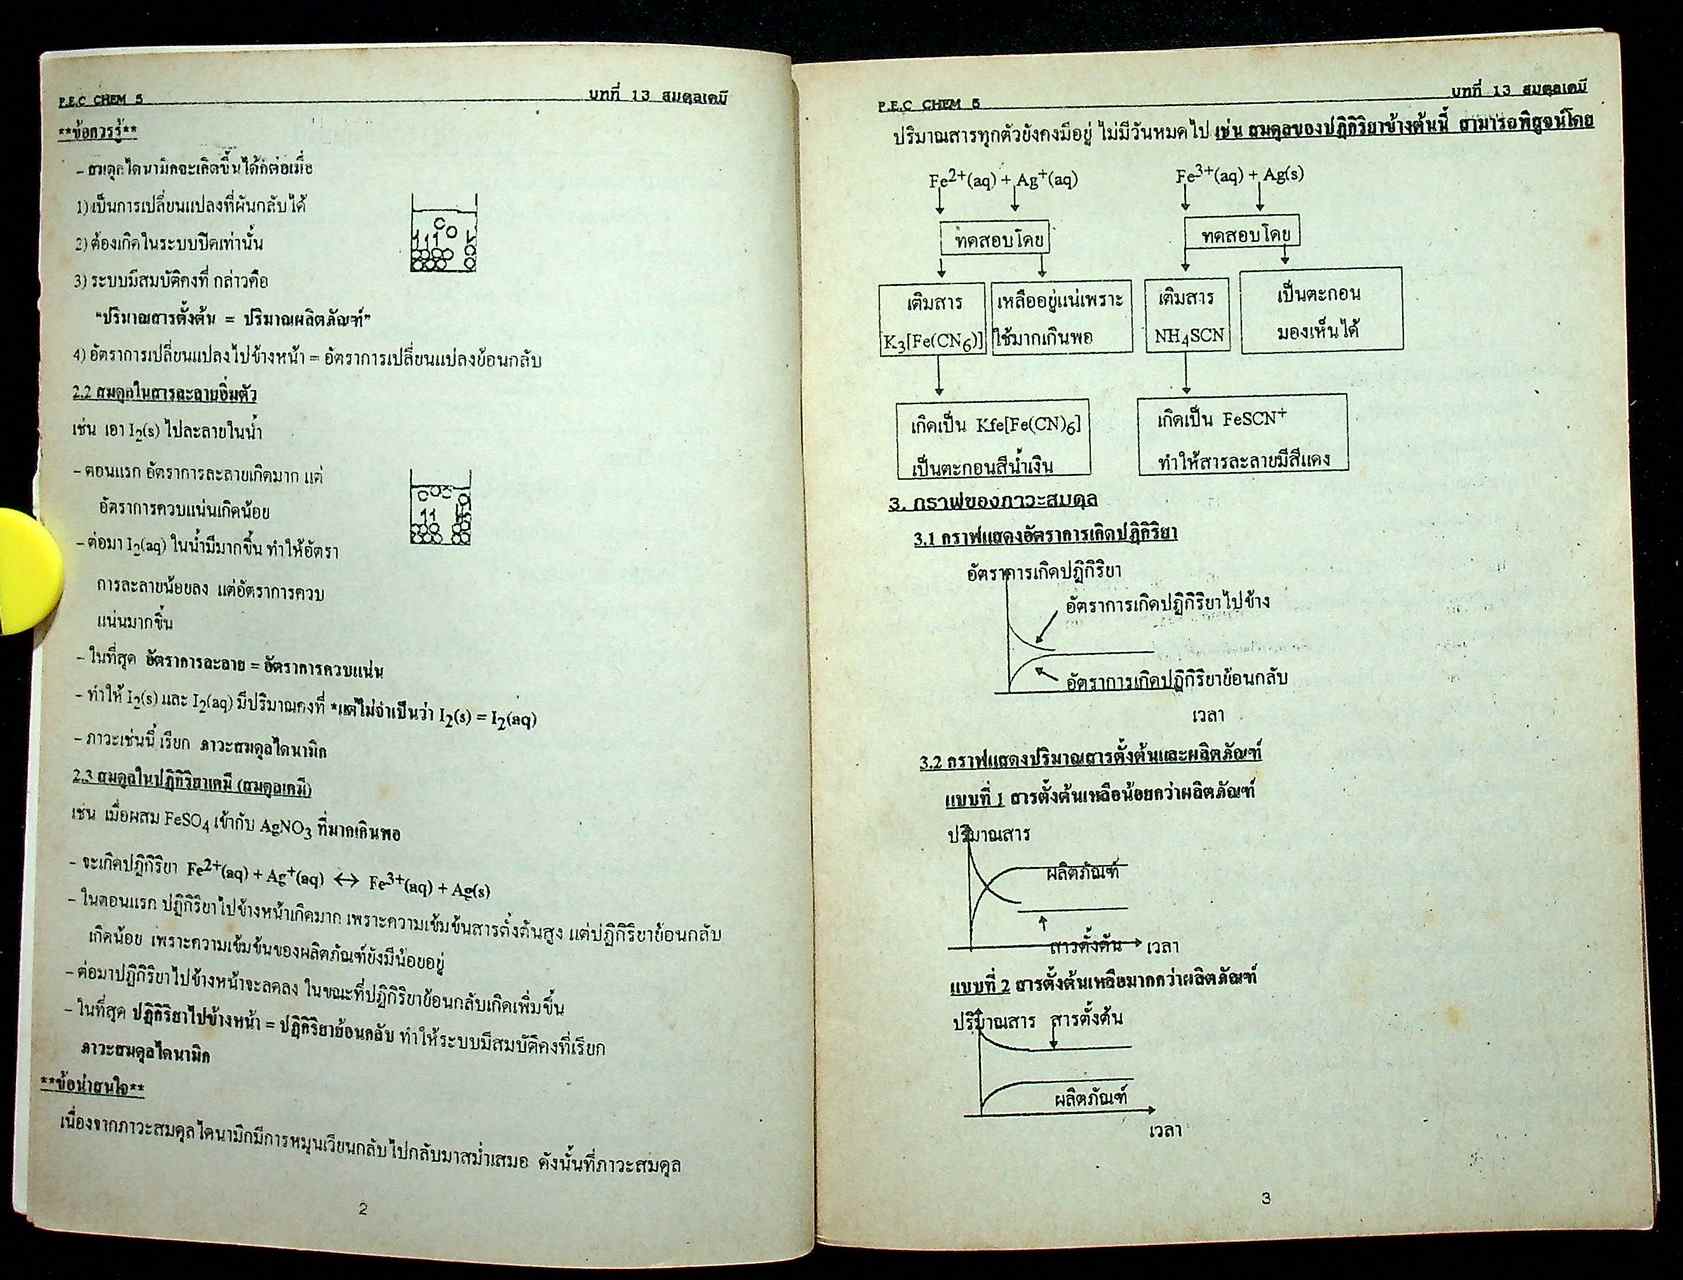 P.E.C CHEM 5 บทที่ 13 สมดุลเคมี
**ข้อควรรู้**
- สมดุลไดนามิคจะเกิดขึ้นได้ก็ต่อเมื่อ
1) เป็นการเปลี่ยนแปลงที่ผันกลับได้
2) ต้องเกิดในระบบปิดเท่านั้น
3) ระบบมีสมบัติคงที่ กล่าวคือ
"ปริมาณสารตั้งต้น = ปริมาณผลิตภัณฑ์"
4) อัตราการเปลี่ยนแปลงไปข้างหน้า = อัตราการเปลี่ยนแปลงย้อนกลับ
2.2 สมดุลในสารละลายอิ่มตัว
เช่น เอา I2(s) ไปละลายในน้ำ
- ตอนแรก อัตราการละลายเกิดมาก แต่
อัตราการควบแน่นเกิดน้อย
- ต่อมา I2(aq) ในน้ำมีมากขึ้น ทำให้อัตรา
การละลายน้อยลง แต่อัตราการควบ
แน่นมากขึ้น
- ในที่สุด อัตราการละลาย = อัตราการควบแน่น
- ทำให้ I2(s) และ I2(aq) มีปริมาณคงที่ *แต่ไม่จำเป็นว่า I2(s) = I2(aq)
- ภาวะเช่นนี้ เรียก ภาวะสมดุลไดนามิก
2.3 สมดุลในปฏิกิริยาเคมี (สมดุลเคมี)
เช่น เมื่อผสม FeSO4 เข้ากับ AgNO3 ที่มากเกินพอ
- จะเกิดปฏิกิริยา Fe2+(aq) + Ag+(aq) ↔ Fe3+(aq) + Ag(s)
- ในตอนแรก ปฏิกิริยาไปข้างหน้าเกิดมาก เพราะความเข้มข้นสารตั้งต้นสูง แต่ปฏิกิริยาย้อนกลับ
เกิดน้อย เพราะความเข้มข้นของผลิตภัณฑ์ยังมีน้อยอยู่
- ต่อมาปฏิกิริยาไปข้างหน้าจะลดลง ในขณะที่ปฏิกิริยาย้อนกลับเกิดเพิ่มขึ้น
- ในที่สุด ปฏิกิริยาไปข้างหน้า = ปฏิกิริยาย้อนกลับ ทำให้ระบบมีสมบัติคงที่เรียก
ภาวะสมดุลไดนามิก
**ข้อน่าสนใจ**
เนื่องจากภาวะสมดุลไดนามิกมีการหมุนเวียนกลับไปกลับมาสม่ำเสมอ ดังนั้นที่ภาวะสมดุล
2
P.E.C CHEM 5 บทที่ 13 สมดุลเคมี
ปริมาณสารทุกตัวยังคงมีอยู่ ไม่มีวันหมดไป เช่น สมดุลของปฏิกิริยาข้างต้นนี้ สามารถพิสูจน์โดย
Fe2+(aq) + Ag+(aq) Fe3+(aq) + Ag(s)
ทดสอบโดย ทดสอบโดย
เติมสาร เหลืออยู่แน่เพราะ เติมสาร เป็นตะกอน
K3[Fe(CN6)] ใช้มากเกินพอ NH4SCN มองเห็นได้
เกิดเป็น Kfe[Fe(CN)6] เกิดเป็น FeSCN+
เป็นตะกอนสีน้ำเงิน ทำให้สารละลายมีสีแดง
3. กราฟของภาวะสมดุล
3.1 กราฟแสดงอัตราการเกิดปฏิกิริยา
อัตราการเกิดปฏิกิริยา
อัตราการเกิดปฏิกิริยาไปข้าง
อัตราการเกิดปฏิกิริยาย้อนกลับ
เวลา
3.2 กราฟแสดงปริมาณสารตั้งต้นและผลิตภัณฑ์
แบบที่ 1 สารตั้งต้นเหลือน้อยกว่าผลิตภัณฑ์
ปริมาณสาร
ผลิตภัณฑ์
สารตั้งต้น เวลา
แบบที่ 2 สารตั้งต้นเหลือมากกว่าผลิตภัณฑ์
ปริมาณสาร สารตั้งต้น
ผลิตภัณฑ์
เวลา
3